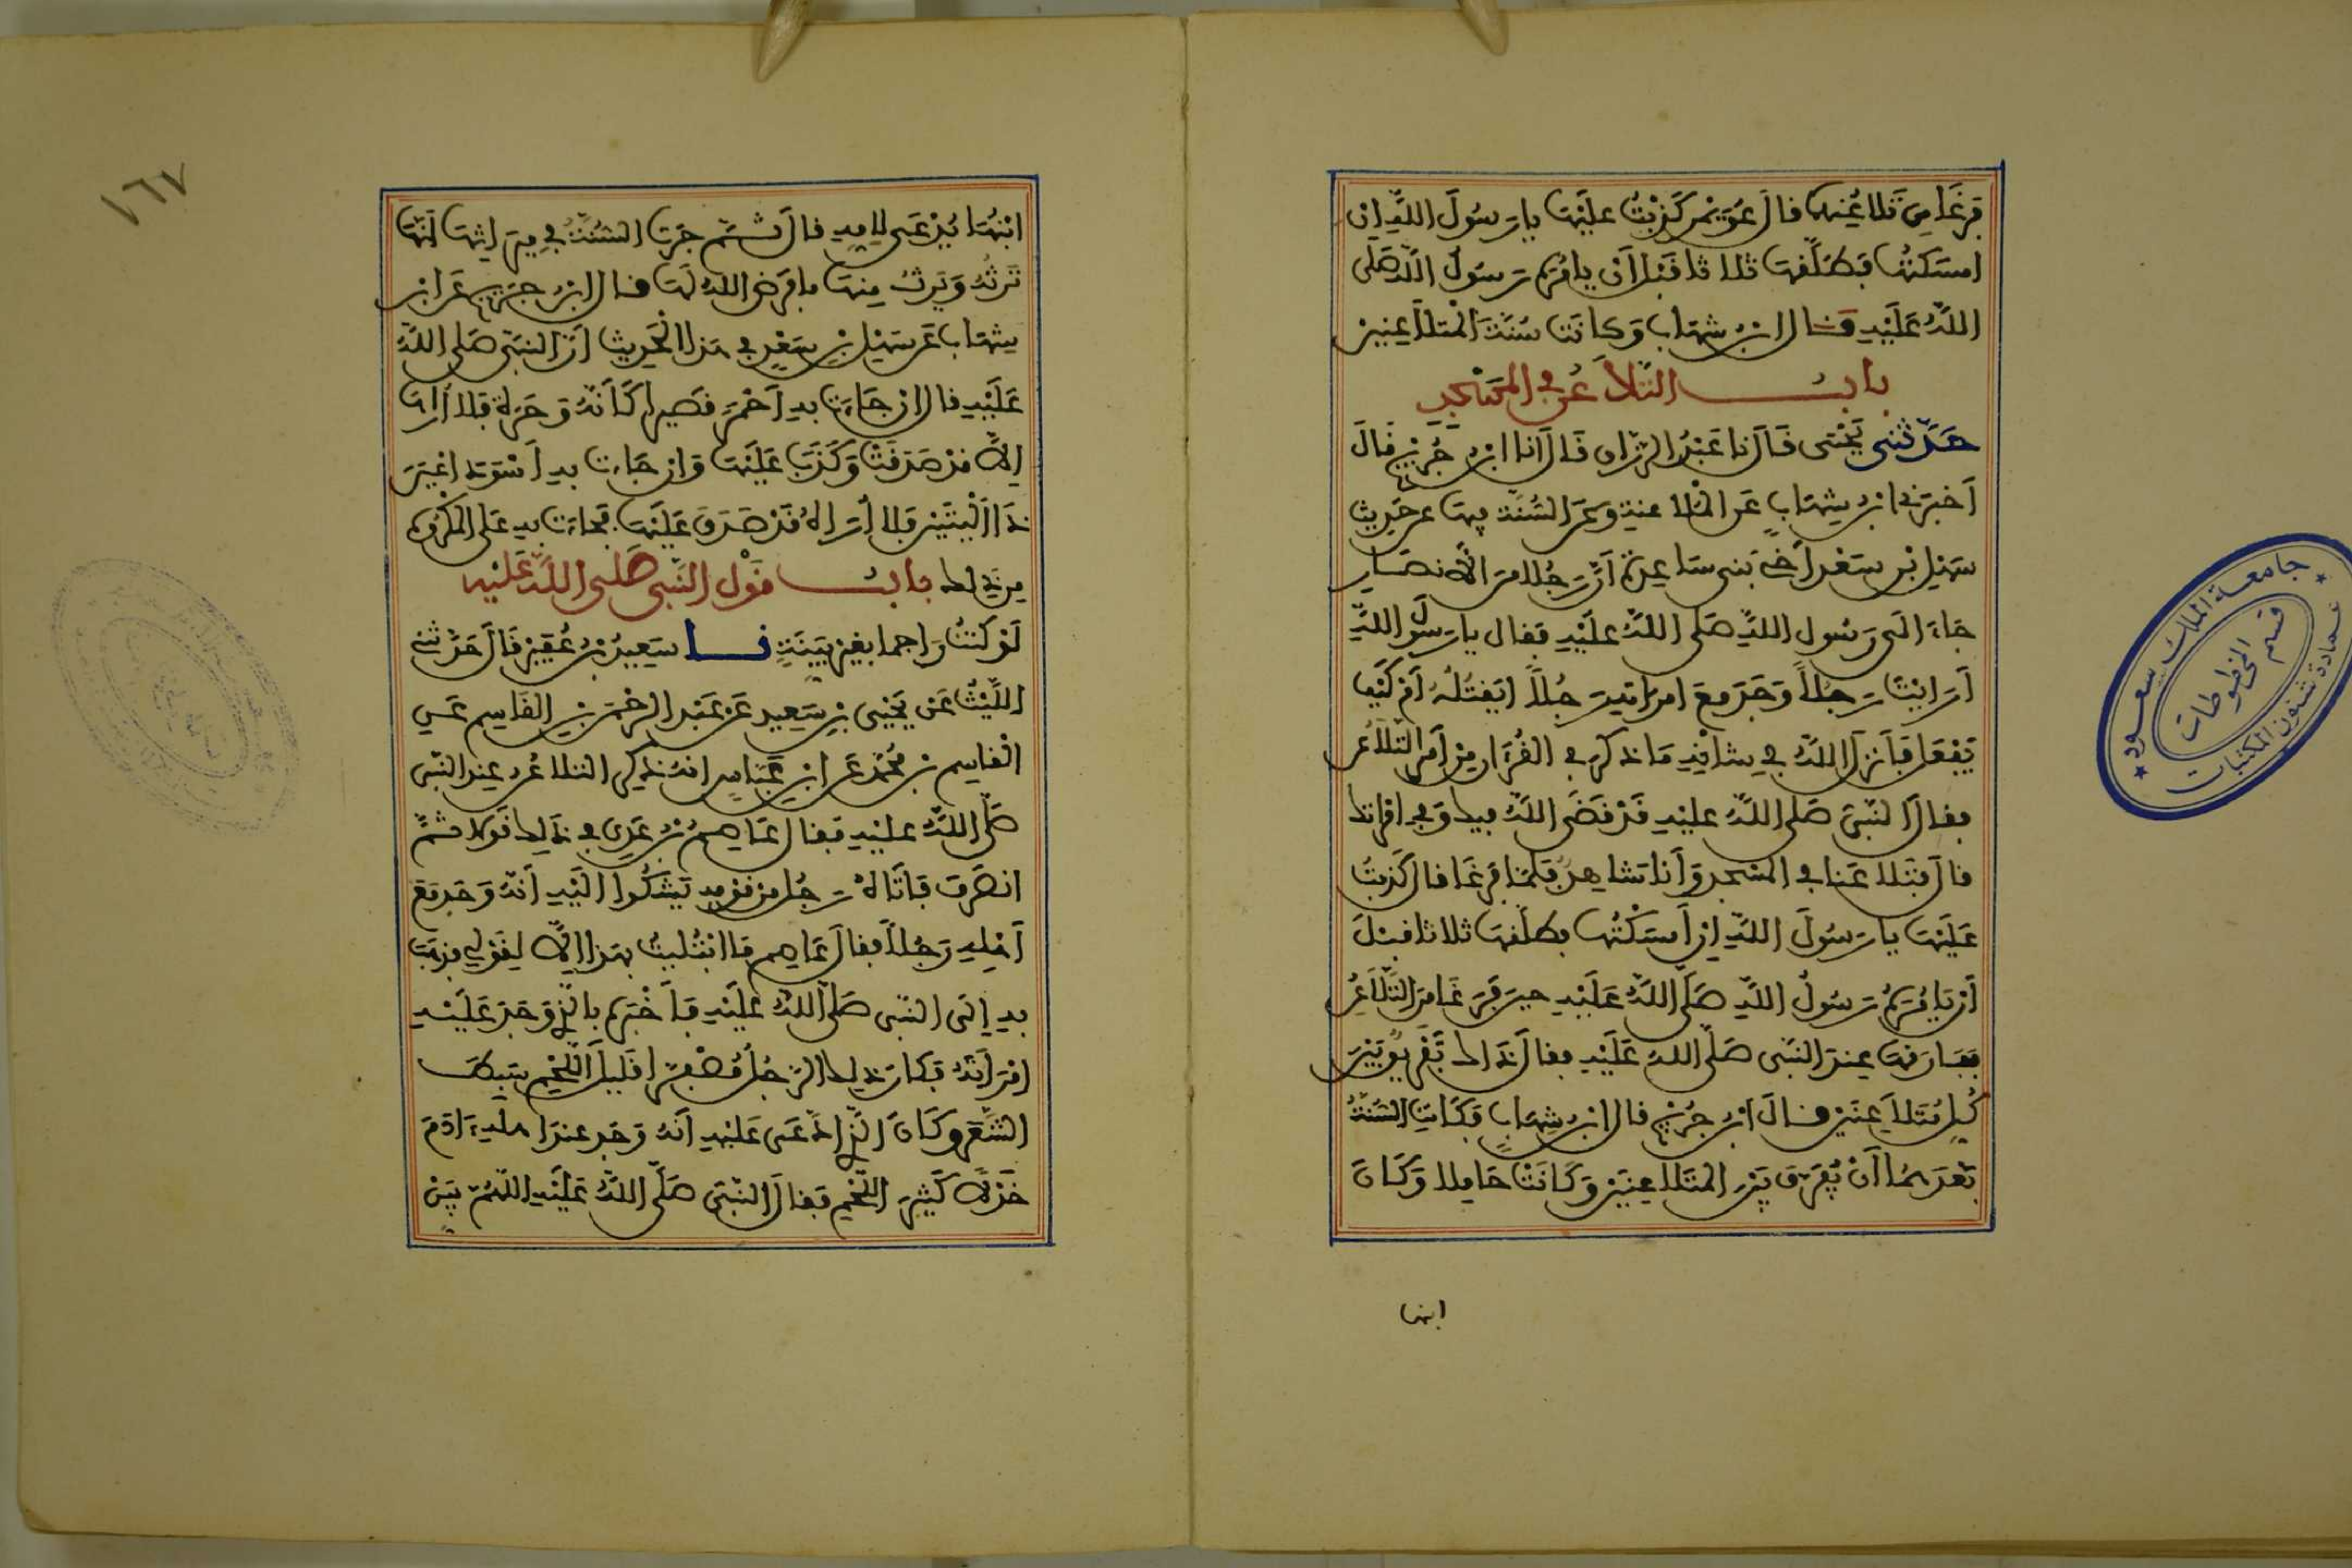 فرغا من تلاعنهما قال عويمر كذبت عليها يا رسول الله ان
امسكتها فطلقها ثلاثا قبل أن يامره رسول الله صلى
الله عليه قال ابن شهاب وكانت سنة المتلاعنين
باب التلاعن في المسجد
حدثني يحيى قال نا عبد الرزاق قال انا ابن جريج قال
أخبرني ابن شهاب عن الملاعنة وعن السنة فيها عن حديث
سهل بن سعد أخي بني ساعدة أن رجلا من الانصار
جاء الى رسول الله صلى الله عليه فقال يا رسول الله
أرايت رجلا وجد مع امراته رجلا ايقتله أم كيف
يفعل فأنزل الله في شانه ما ذكر في القرءان من أمر التلاعن
فقال النبي صلى الله عليه قد قضى الله فيك وفي امراتك
قال فتلاعنا في المسجد وأنا شاهد فلما فرغا قال كذبت
عليها يا رسول الله إن أمسكتها فطلقها ثلاثا قبل
أن يامره رسول الله صلى الله عليه حين فرغا من التلاعن
ففارقها عند النبي صلى الله عليه فقال ذاك تفريق بين
كل متلاعنين قال ابن جريج قال ابن شهاب فكانت السنة
بعدهما أن يفرق بين المتلاعنين وكانت حاملا وكان
ابنها
١٦٧
ابنها يدعى لامه قال ثم جرت السنة في ميراثها أنها
ترثه ويرث منها ما فرض الله له قال ابن جريج عن ابن
شهاب عن سهل بن سعد في هذا الحديث أن النبي صلى الله
عليه قال ان جاءت به أحمر قصيرا كأنه وحرة فلا أراها
إلا قد صدقت وكذب عليها وان جاءت به أسود اعين
ذا اليتين فلا أراه الا قد صدق عليها فجاءت به على المكروه
من ذلك باب قول النبي صلى الله عليه
لو كنت راجما بغير بينة نا سعيد بن عفير قال حدثني
الليث عن يحيى بن سعيد عن عبد الرحمن بن القاسم عن
القاسم بن محمد عن ابن عباس انه ذكر التلاعن عند النبي
صلى الله عليه فقال عاصم بن عدي في ذلك قولا ثم
انصرف فأتاه رجل من قومه يشكوا اليه أنه وجد مع
أهله رجلا فقال عاصم ما ابتليت بهذا إلا لقولي فذهب
به إلى النبي صلى الله عليه فأخبره بالذي وجد عليه
امرأته فكان ذلك الرجل مصفرا قليل اللحم سبط
الشعر وكان الذي ادعى عليه أنه وجد عند اهله ءادم
خدلا كثير اللحم فقال النبي صلى الله عليه اللهم بين
جامعة الملك سعود
عمادة شئون المكتبات
قسم المخطوطات